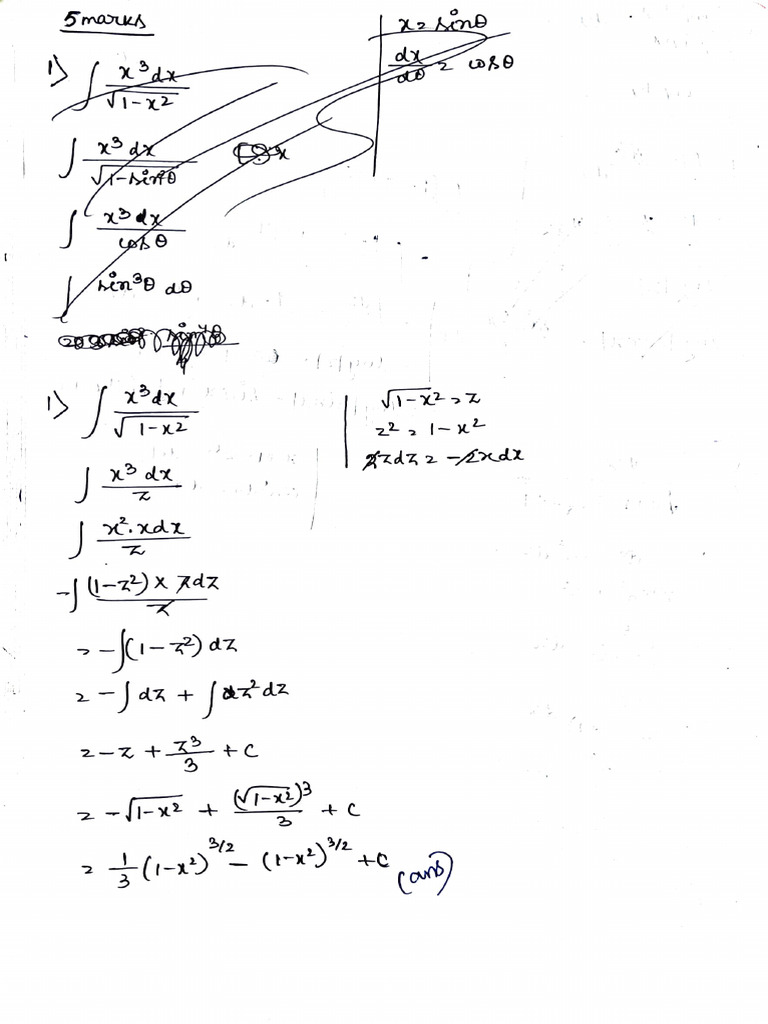 5 marks
1) ∫ x³dx / √1-x²
x = sinθ
dx/dθ = cosθ
∫ x³dx / √1-sin²θ
∫ x³dx / cosθ
∫ sin³θ dθ
1) ∫ x³dx / √1-x²
√1-x² = z
z² = 1-x²
2zdz = -2xdx
∫ x³dx / z
∫ x².xdx / z
-∫ (1-z²) × zdz / z
= -∫(1-z²) dz
= -∫dz + ∫z²dz
= -z + z³/3 + c
= -√1-x² + (√1-x²)³/3 + c
= 1/3 (1-x²)^3/2 - (1-x²)^3/2 + c (ans)